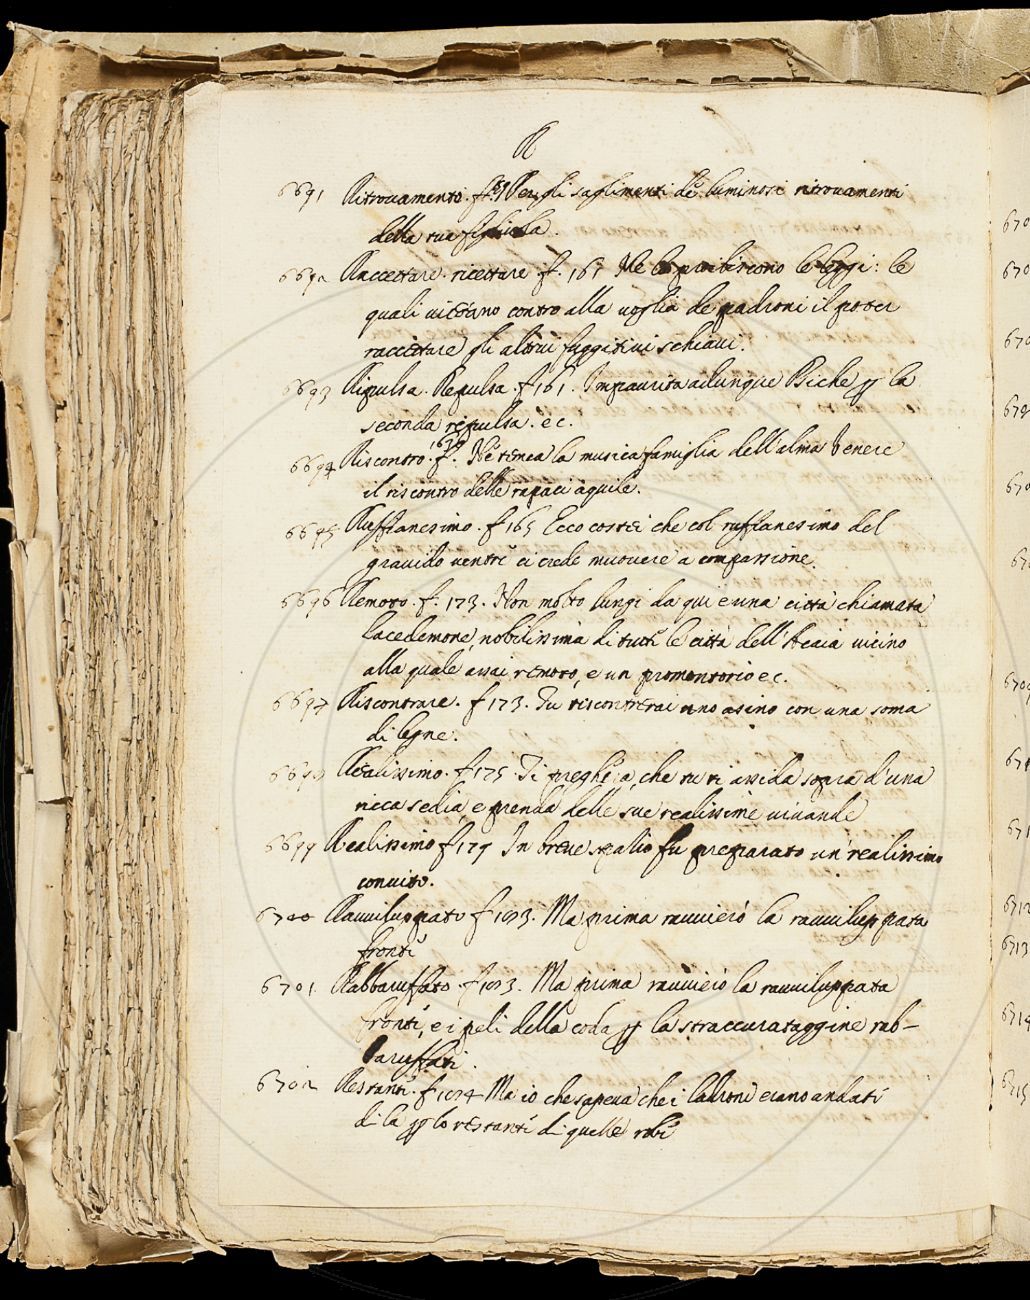 R
6691 Ritrovamento. f. 151 Per gli saglimenti de luminosi ritrovamenti
della tue figliuola.
6692 Raccettare. ricettare f. 161 Me lo proibiscono le leggi: le
quali vietano contro alla voglia de padroni il poter
raccettare gli altrui fuggitivi schiavi.
6693 Ripulsa. Repulsa. f 161. Impaurita adunque Psiche p la
seconda repulsa. ec.
6694 Riscontro. f. 163. Né temea la musica famiglia dell'alma Venere
il riscontro delle rapaci aquile.
6695 Ruffianesimo. f 165 Ecco costei che col ruffianesimo del
gravido ventre ci crede muovere a compassione.
6696 Remoto. f. 173. Non molto lungi da qui e una città chiamata
Lacedemone, nobilissima di tutte le città dell'Acaia vicino
alla quale assai remoto, e un promontorio ec.
6697 Riscontrare. f 173. Tu riscontrerai uno asino con una soma
di legne.
6698 Realissimo. f 175. Ti pregherà, che tu ti assida sopra d'una
ricca sedia, e prenda delle sue realissime vivande
6699 Realissimo f 179 In breve spatio fu preparato un realissimo
convito.
6700 Ravviluppato f 193. Ma prima ravviciò la ravviluppata
fronte
6701 Rabbaruffato. f 193. Ma prima ravviciò la ravviluppata
fronte, e i peli della coda p la straccurataggine rab-
baruffati.
6702 Restante. f 194 Ma io che sapeva che i ladroni erano andati
di la p lo restante di quelle robe
670
670
670
670
670
670
670
671
671
6712
6713
6714
6715